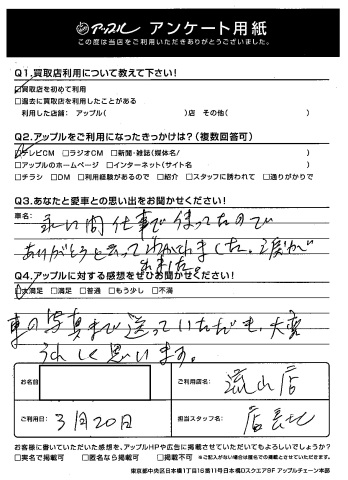 アップル アンケート用紙
この度は当店をご利用いただきありがとうございました。
Q1.買取店利用について教えて下さい!
☑買取店を初めて利用
□過去に買取店を利用したことがある
利用した店舗： アップル( )店 その他( )
Q2.アップルをご利用になったきっかけは?(複数回答可)
☑テレビCM □ラジオCM □新聞・雑誌(媒体名/ )
□アップルのホームページ □インターネット(サイト名 )
□チラシ □DM □利用経験があるので □紹介 □スタッフに誘われて □通りがかりで
Q3.あなたと愛車との思い出をお聞かせください!
車名：
永い間仕事で使ってたので
ありがとうと云ってわかれました。涙が
出ました。
Q4.アップルに対する感想をぜひお聞かせください!
☑大満足 □満足 □普通 □もう少し □不満
車の写真まで送っていただき、大変
うれしく思います。
お名前
ご利用店名：
流山店
ご利用日：
3月20日
担当スタッフ名：
店長
お客様に書いていただいた感想を、アップルHPや広告に掲載させていただいてもよろしいでしょうか?
□実名で掲載可 □匿名なら掲載可 □掲載不可 ※ご記入がない場合は匿名での掲載とさせていただきます。
東京都中央区日本橋1丁目16番11号日本橋DスクエアBF アップルチェーン本部